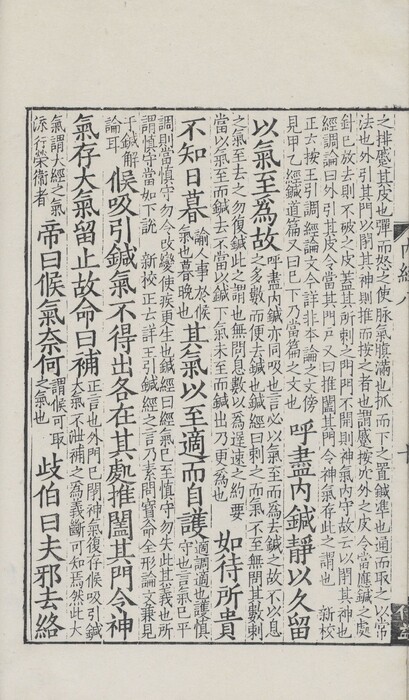 之排蹙其皮也彈而怒之使脈氣䐜滿也抓而下之置鍼準也通而取之以常
法也外引其門以閉其神則推而按之者也謂蹙按穴外之皮令當應鍼之處
針已放去則不破之皮蓋其所刺之門門不開則神氣內守故云以閉其神也
經調論曰外引其皮令當其門戶又曰推闔其門令神氣存此之謂也　新校
正云按王引調經論文今詳非本論之文傍
見甲乙經鍼道篇又曰已下乃當篇之文也
呼盡內鍼靜以久留
以氣至為故
呼盡內鍼亦同吸也言必以氣至而為去鍼之故不以息
之多數而便去鍼也鍼經曰刺之而氣不至無問其數刺
之氣至去之勿復鍼此之謂也無問息數以為遲速之約要
當以氣至而鍼去不當以鍼下氣未至而鍼出乃更為也
如待所貴
不知日暮
諭人事於候
氣也暮晚也
其氣以至適而自護
適調適也護慎
守也言氣已平
調則當慎守勿令改變使疾更生也鍼經曰經氣已至慎守勿失此其義也所
謂慎守當如下說　新校正云詳王引鍼經之言乃素問寶命全形論文兼見
于鍼解
論耳
候吸引鍼氣不得出各在其處推闔其門令神
氣存大氣留止故命曰補
正言也外門已閉神氣復存候吸引鍼
大氣不泄補之為義斷可知焉然此大
氣謂大經之氣
流行榮衛者
帝曰候氣奈何
謂候可取
之氣也
歧伯曰夫邪去絡